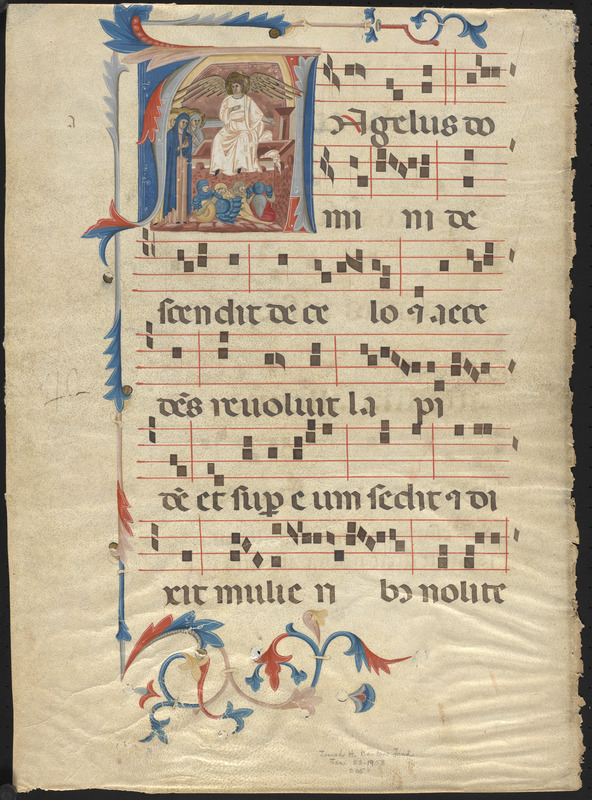 Angelus do
mi ni de
scendit de ce lo ⁊ acce
dēs reuoluit la pi
dē et sup̱ e um sedit ⁊ di
xit mulie ri bꝫ nolite